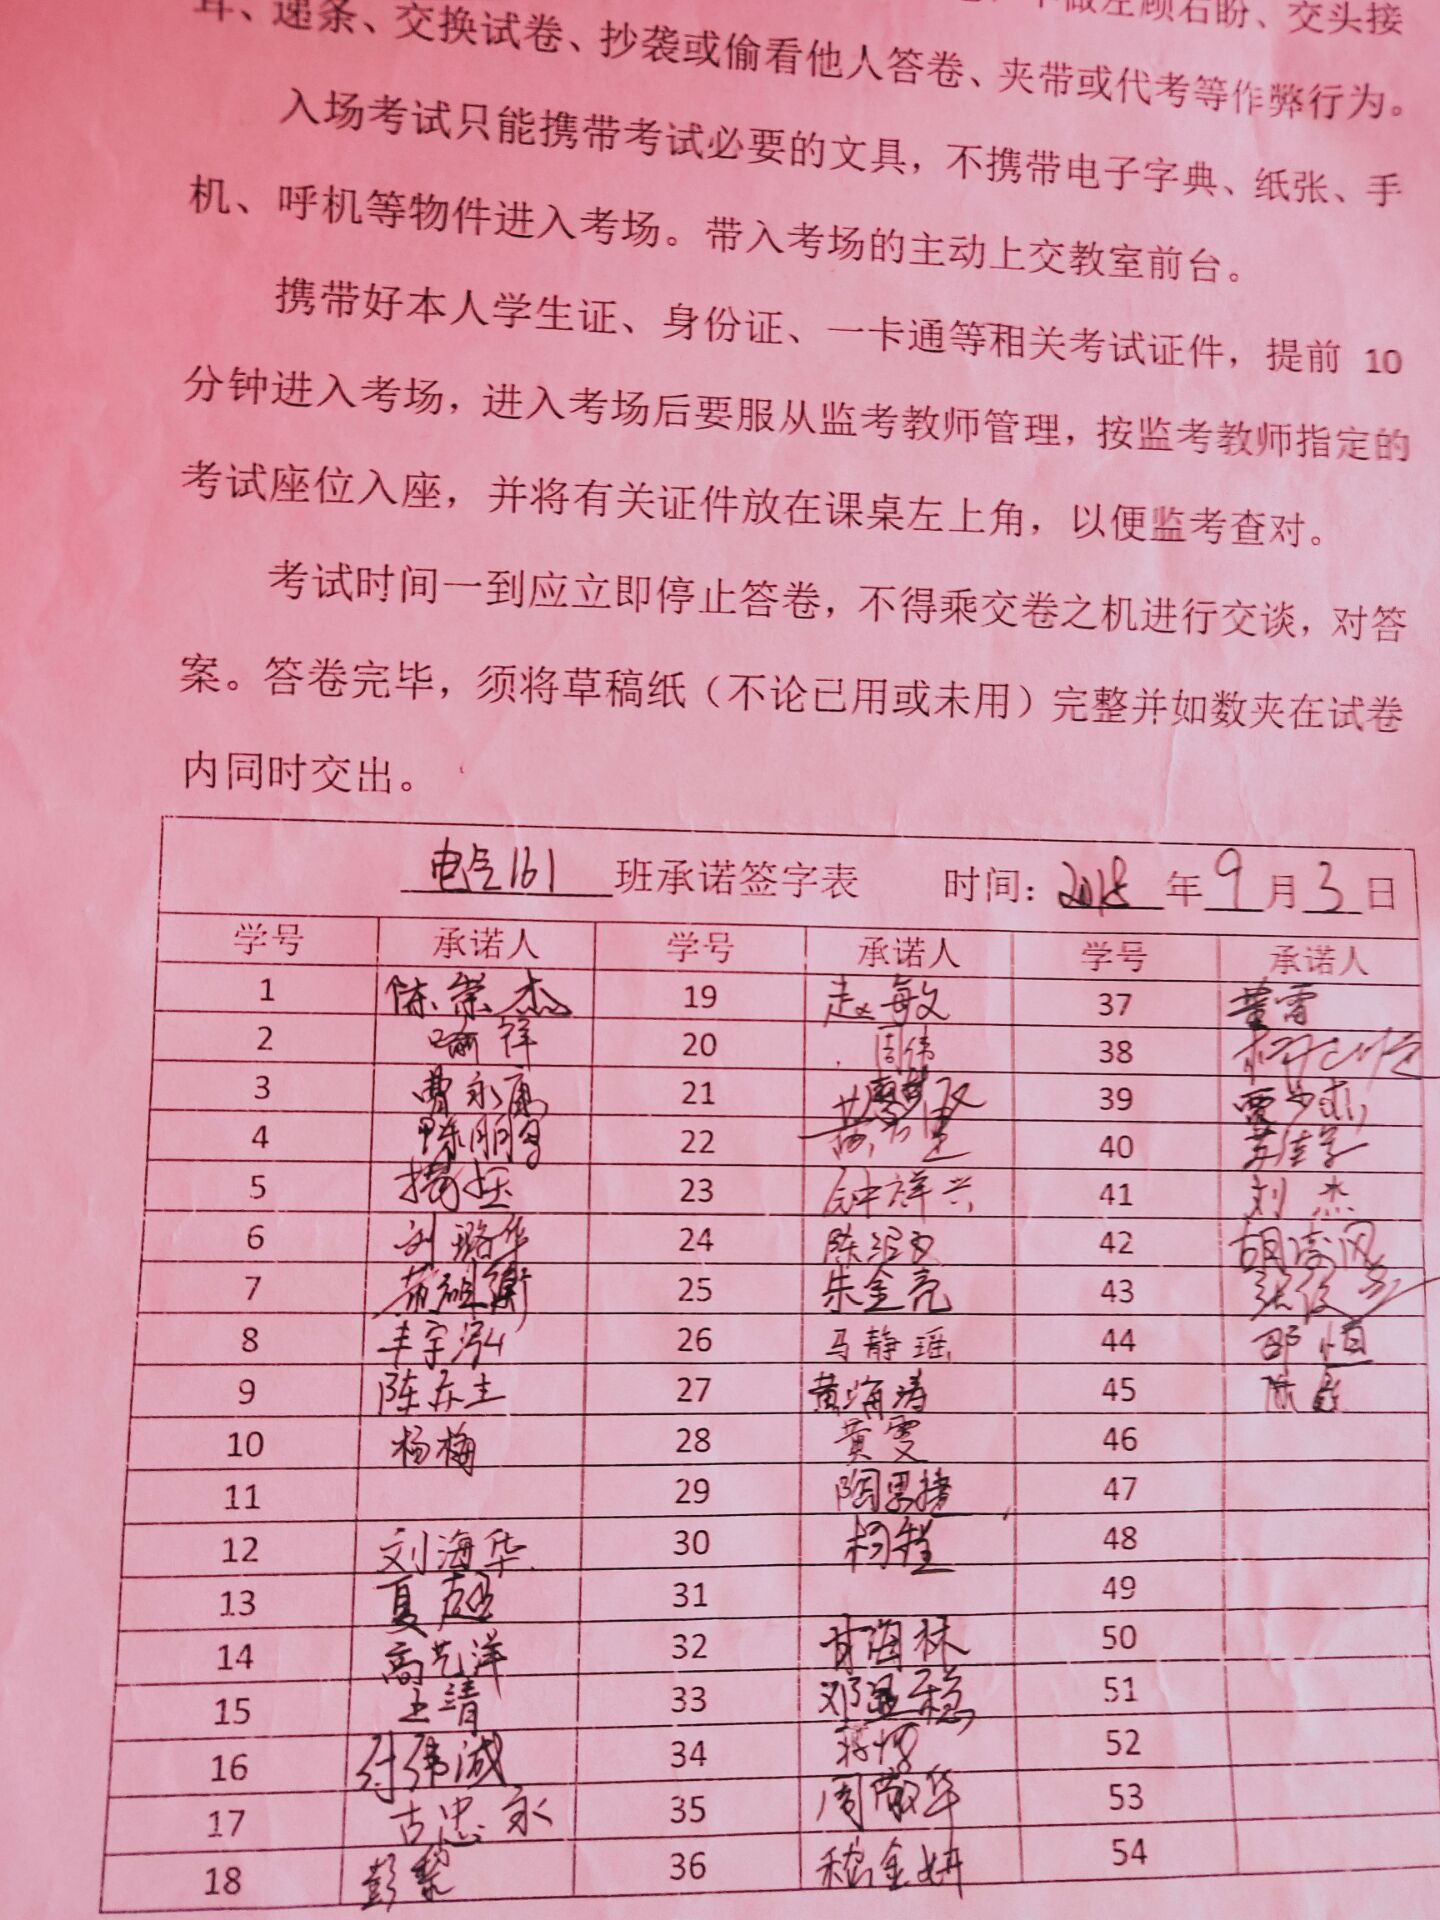 做左顾右盼、交头接
耳、递条、交换试卷、抄袭或偷看他人答卷、夹带或代考等作弊行为。
入场考试只能携带考试必要的文具，不携带电子字典、纸张、手
机、呼机等物件进入考场。带入考场的主动上交教室前台。
携带好本人学生证、身份证、一卡通等相关考试证件，提前 10
分钟进入考场，进入考场后要服从监考教师管理，按监考教师指定的
考试座位入座，并将有关证件放在课桌左上角，以便监考查对。
考试时间一到应立即停止答卷，不得乘交卷之机进行交谈，对答
案。答卷完毕，须将草稿纸（不论已用或未用）完整并如数夹在试卷
内同时交出。
电气161 班承诺签字表 时间：2018 年 9 月 3 日
学号 承诺人 学号 承诺人 学号 承诺人
1 陈崇杰 19 赵敏 37 黄雷
2 喻祥 20 周伟 38
3 曹永高 21 39
4 陈朋 22 40 苏佳学
5 23 钟祥兴 41 刘杰
6 刘璐华 24 42 胡涛
7 25 朱金亮 43 张俊
8 丰宇泓 26 马静瑶 44 邵恒
9 陈东生 27 黄海涛 45 陈
10 杨梅 28 黄雯 46
11 29 陶思捷 47
12 刘海华 30 柯程 48
13 夏超 31 49
14 高艺洋 32 甘海林 50
15 王靖 33 邓显稳 51
16 付伟诚 34 52
17 古忠永 35 周敬华 53
18 彭黎 36 嵇金妍 54